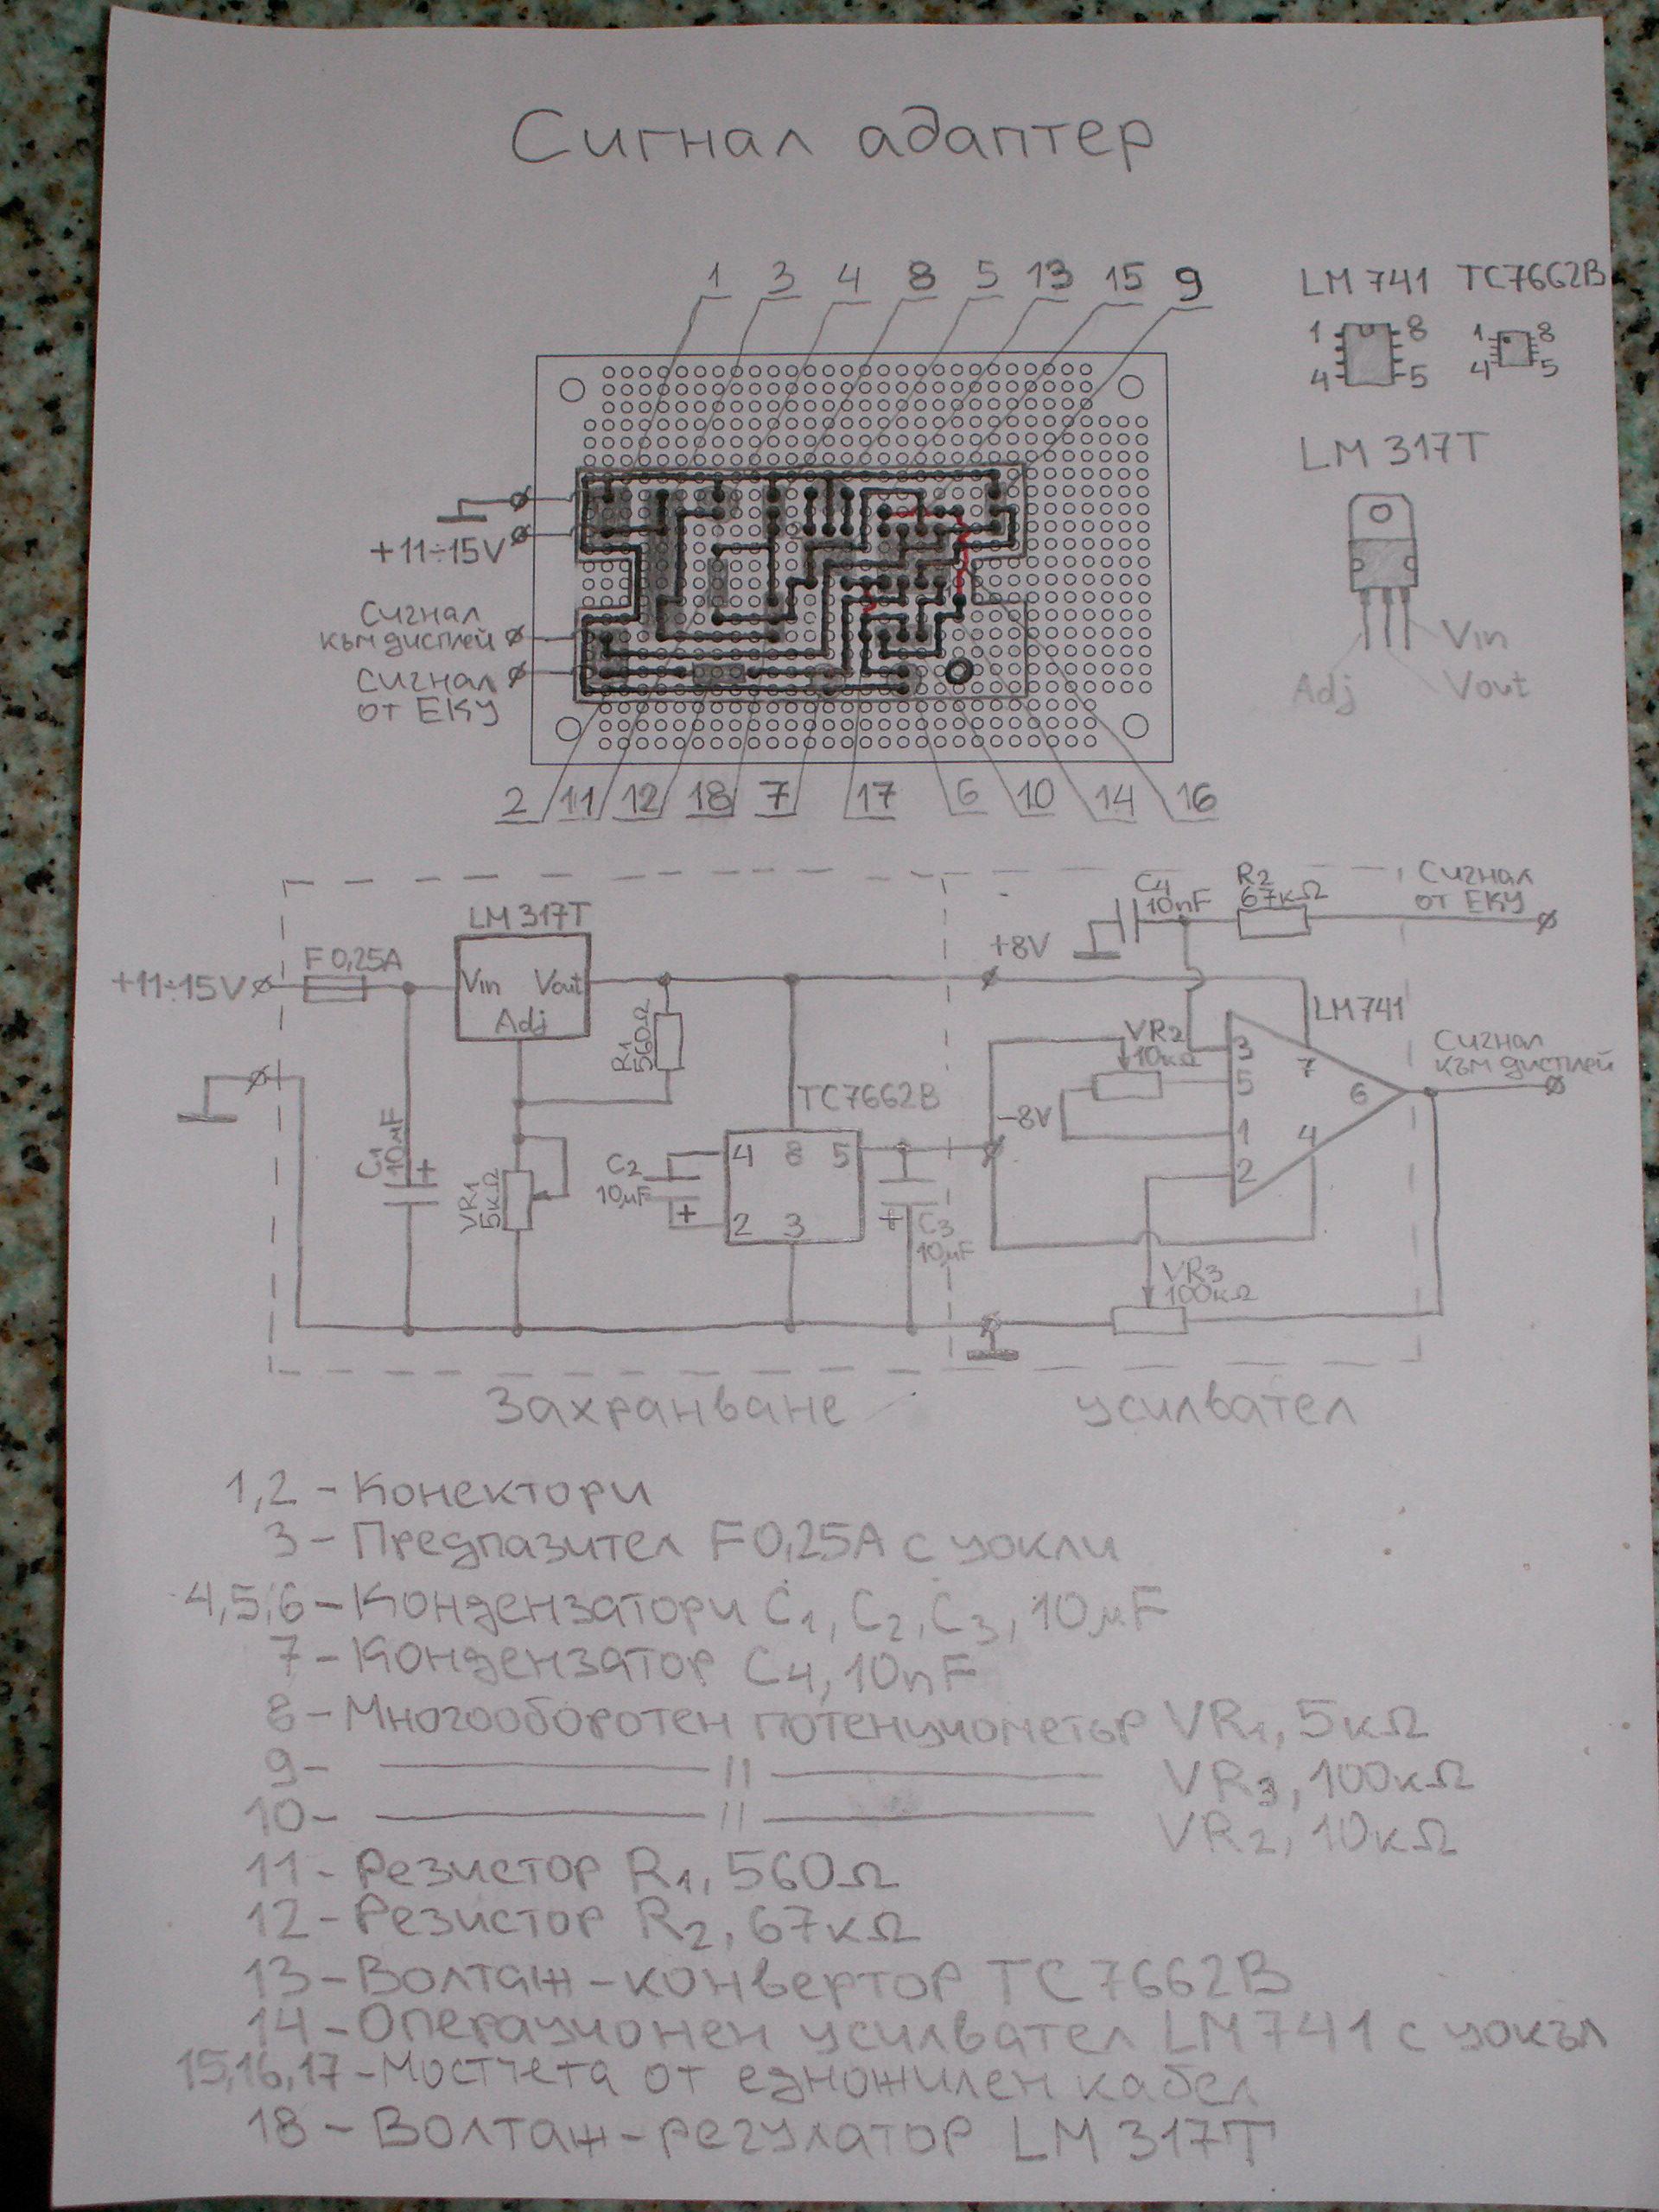 Сигнал адаптер
1 3 4 8 5 13 15 9
LM 741 TC7662B
1 8 1 8
4 5 4 5
LM 317T
+11÷15V
Сигнал
към дисплей
Сигнал
от ЕКУ
Vin
Adj Vout
2 11 12 18 7 17 6 10 14 16
C4
10nF
R2
67кΩ
Сигнал
от ЕКУ
LM317T
+8V
F 0,25A
+11÷15V
Vin Vout
Adj
R1
560Ω
LM741
VR2
10кΩ
Сигнал
към дисплей
3 7
5
6
1 4
2
TC7662B
-8V
C1
10μF
+
VR1
5кΩ
C2
10μF
+
4 8 5
2 3
+
C3
10μF
VR3
100кΩ
Захранване усилвател
1,2 - Конектори
3 - Предпазител F0,25A с цокли
4,5,6 - Кондензатори C1, C2, C3, 10μF
7 - Кондензатор C4, 10nF
8 - Многооборотен потенциометър VR1, 5кΩ
9- —— // —— VR3, 100кΩ
10- —— // —— VR2, 10кΩ
11 - Резистор R1, 560Ω
12 - Резистор R2, 67кΩ
13 - Волтаж-конвертор TC7662B
14 - Операционен усилвател LM741 с цокъл
15,16,17 - Мостчета от едножилен кабел
18 - Волтаж-регулатор LM 317T